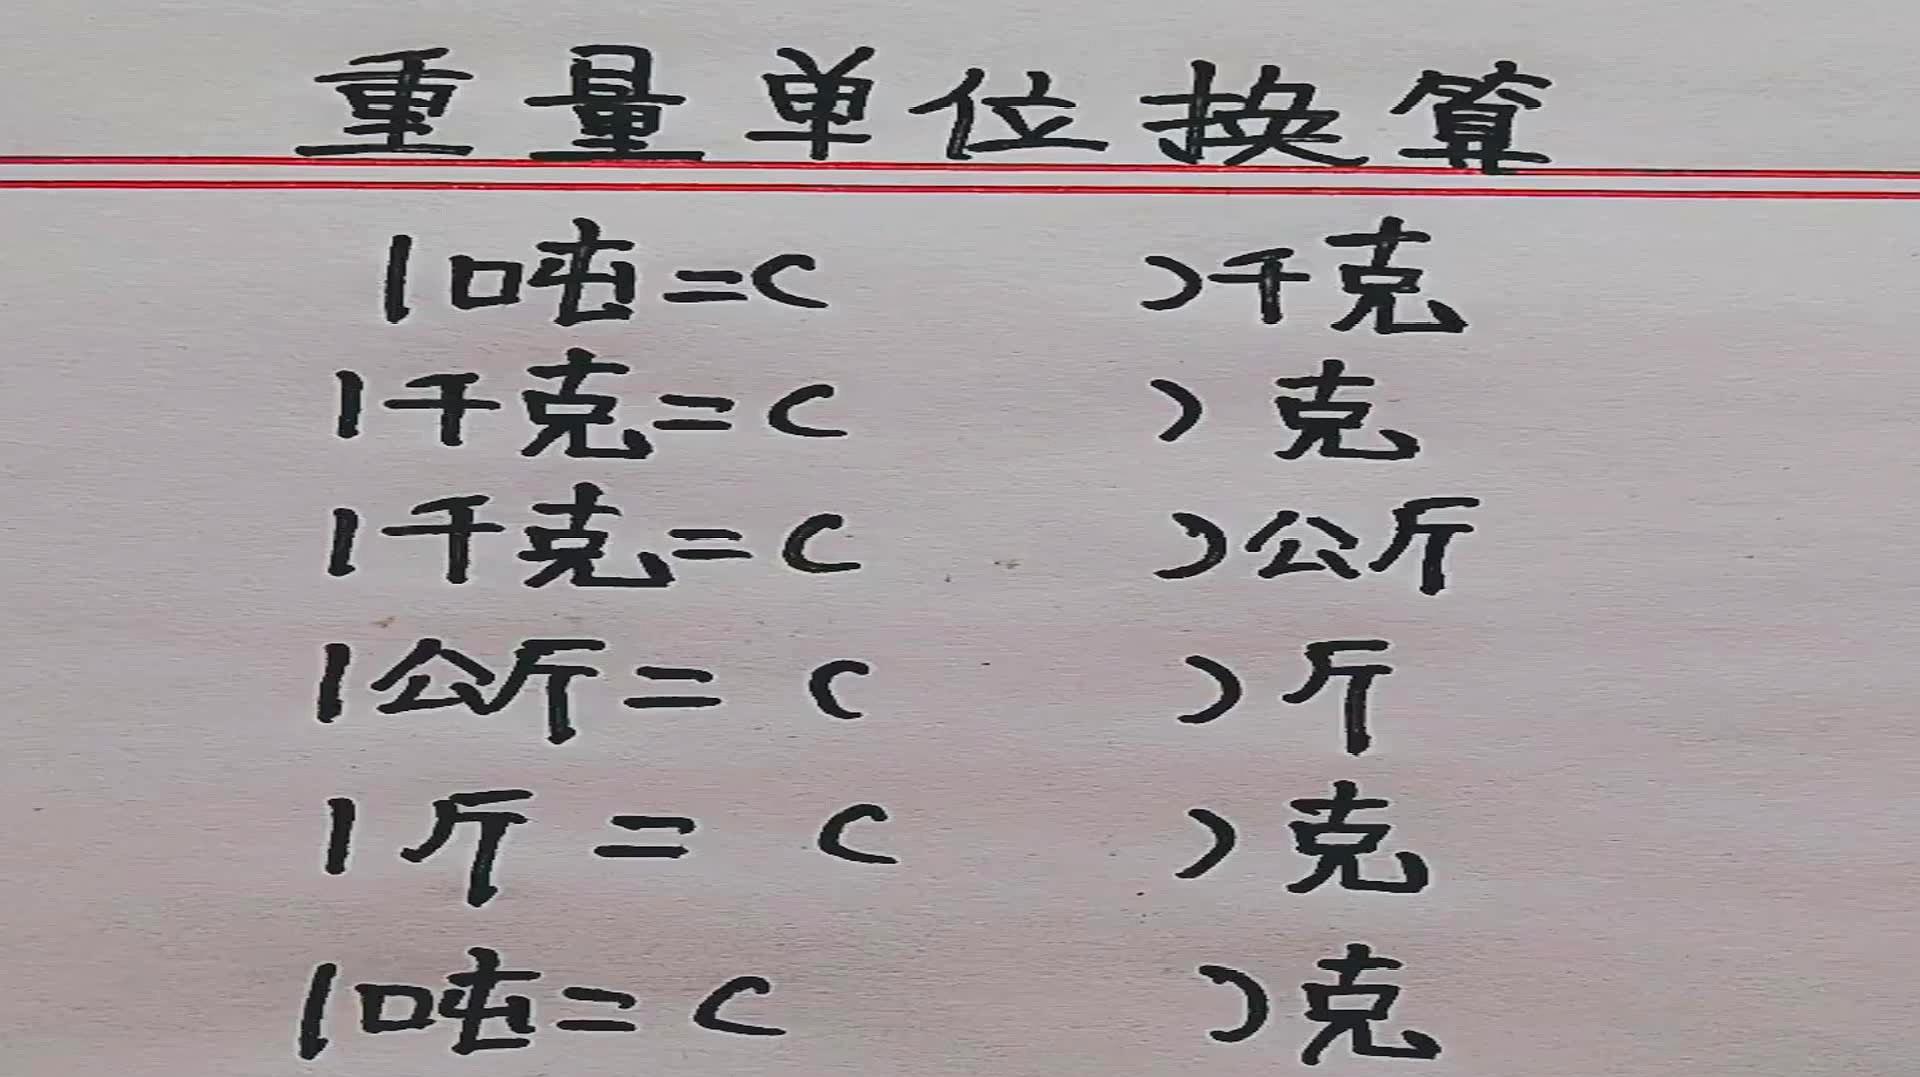 重量单位换算
1吨=( )千克
1千克=( )克
1千克=( )公斤
1公斤=( )斤
1斤=( )克
1吨=( )克